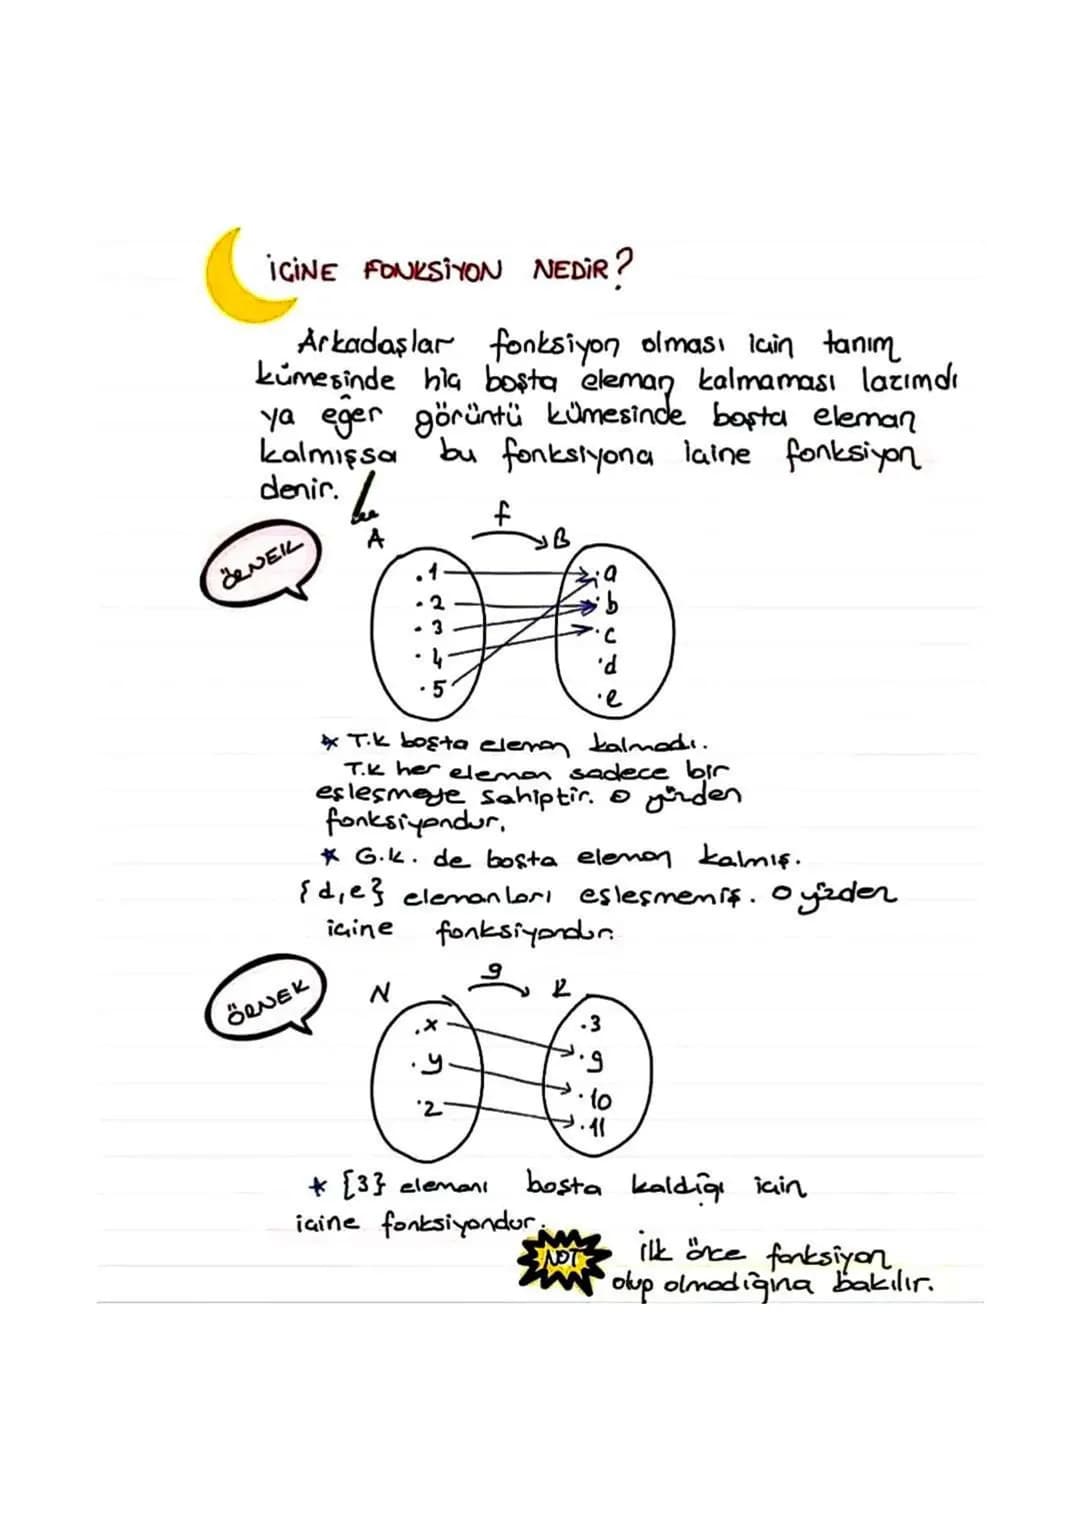 İÇİNE FONKSİYON NEDİR?
Arkadaşlar fonksiyon olması için tanım
kümesinde hiç boşta eleman kalmaması lazımdı
ya eğer görüntü kümesinde boşta eleman
kalmışsa bu fonksiyona içine fonksiyon
denir.
f
A B
ÖRNEK
.1 .a
.2 .b
.3 .c
.4 .d
.5 .e
* T.K boşta eleman kalmadı.
T.K her eleman sadece bir
eşleşmeye sahiptir. O yüzden
fonksiyondur.
* G.K. de boşta eleman kalmış.
{d,e} elemanları eşleşmemiş. O yüzden
içine fonksiyondur.
g
ÖRNEK
N R
.x .3
.y .9
.z .10
.11
* {3} elemanı boşta kaldığı için
içine fonksiyondur.
NOT İlk önce fonksiyon
olup olmadığına bakılır.